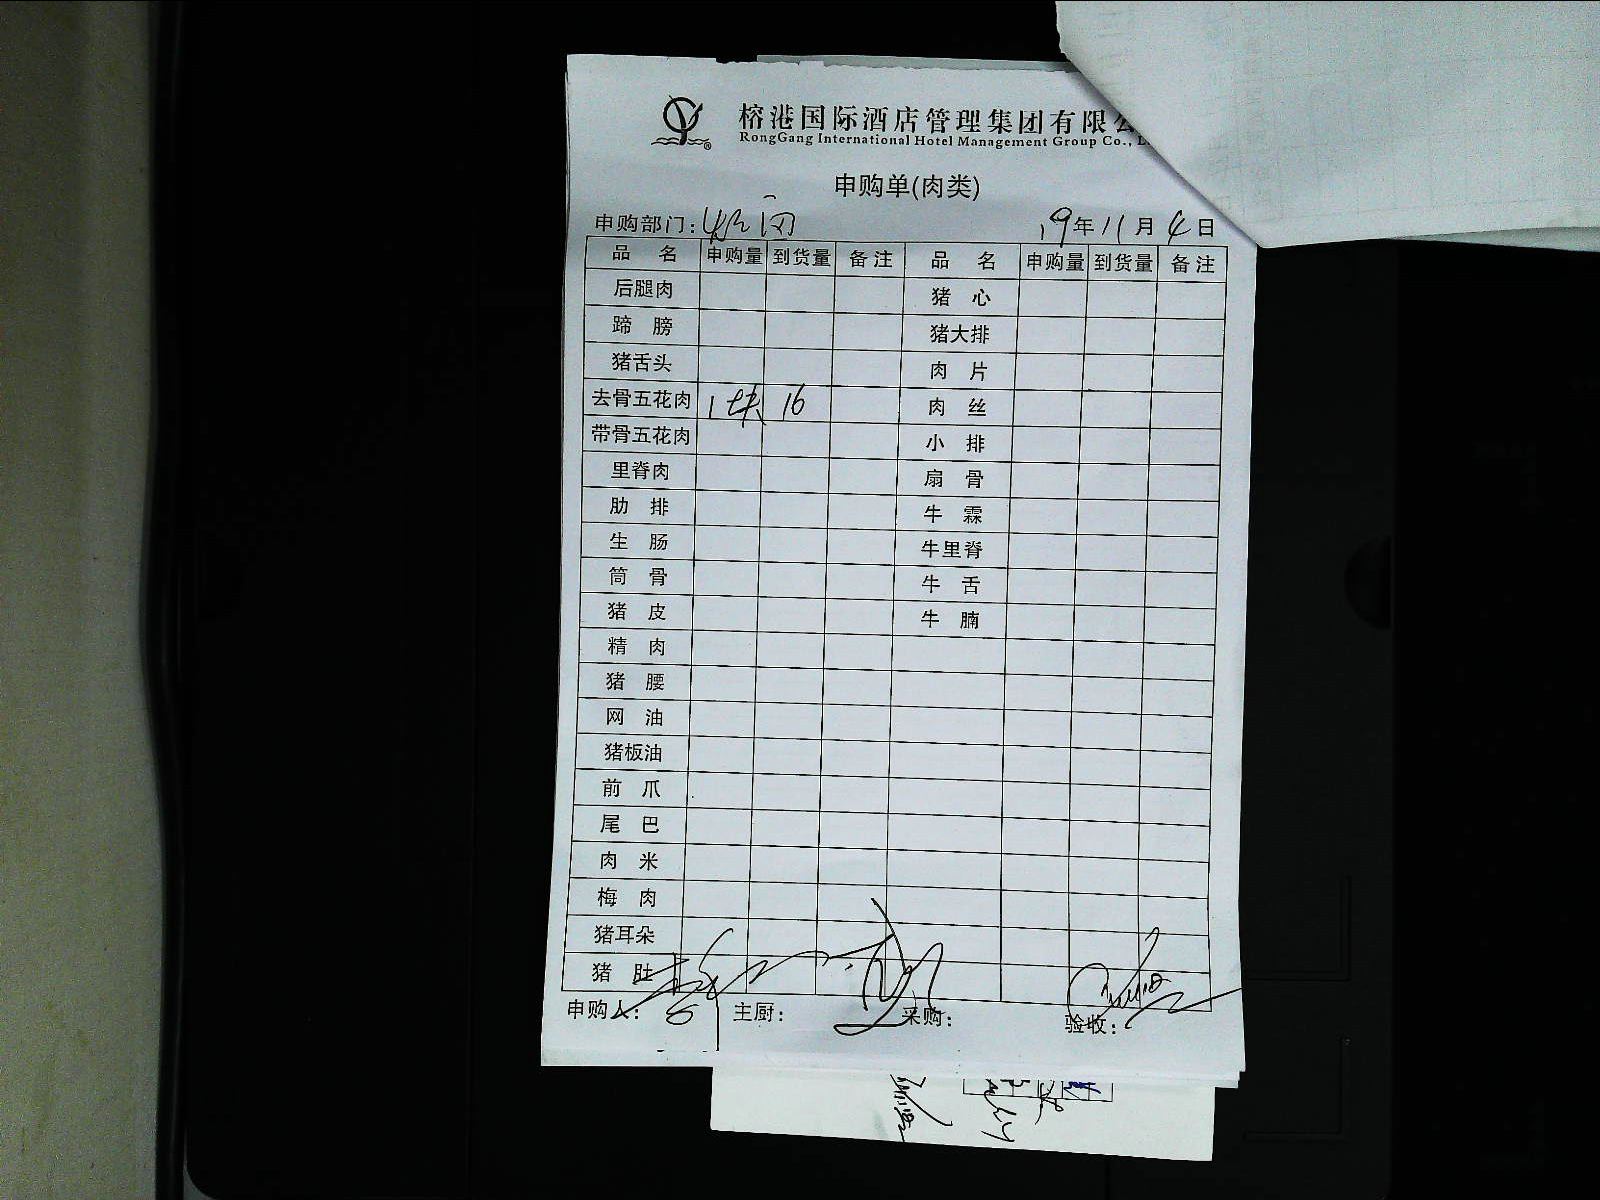 榕港国际酒店管理集团有限公
RongGang International Hotel Management Group Co., L
申购单(肉类)
申购部门: 19年11月4日
品 名 申购量 到货量 备注 品 名 申购量 到货量 备注
后腿肉 猪 心
蹄 膀 猪大排
猪舌头 肉 片
去骨五花肉 1块 16 肉 丝
带骨五花肉 小 排
里脊肉 扇 骨
肋 排 牛 霖
生 肠 牛里脊
筒 骨 牛 舌
猪 皮 牛 腩
精 肉
猪 腰
网 油
猪板油
前 爪
尾 巴
肉 米
梅 肉
猪耳朵
猪 肚
申购人: 主厨: 采购: 验收: